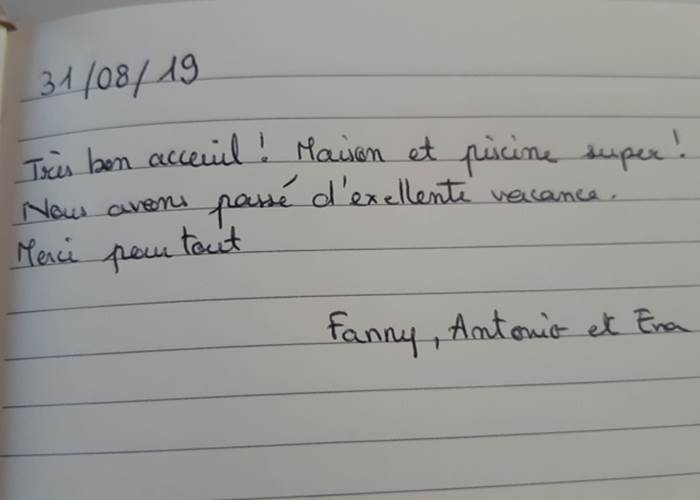 31/08/19
Très bon acceuil! Maison et piscine super!
Nous avons passé d'exellente vacance.
Merci pour tout
Fanny, Antonio et Ena